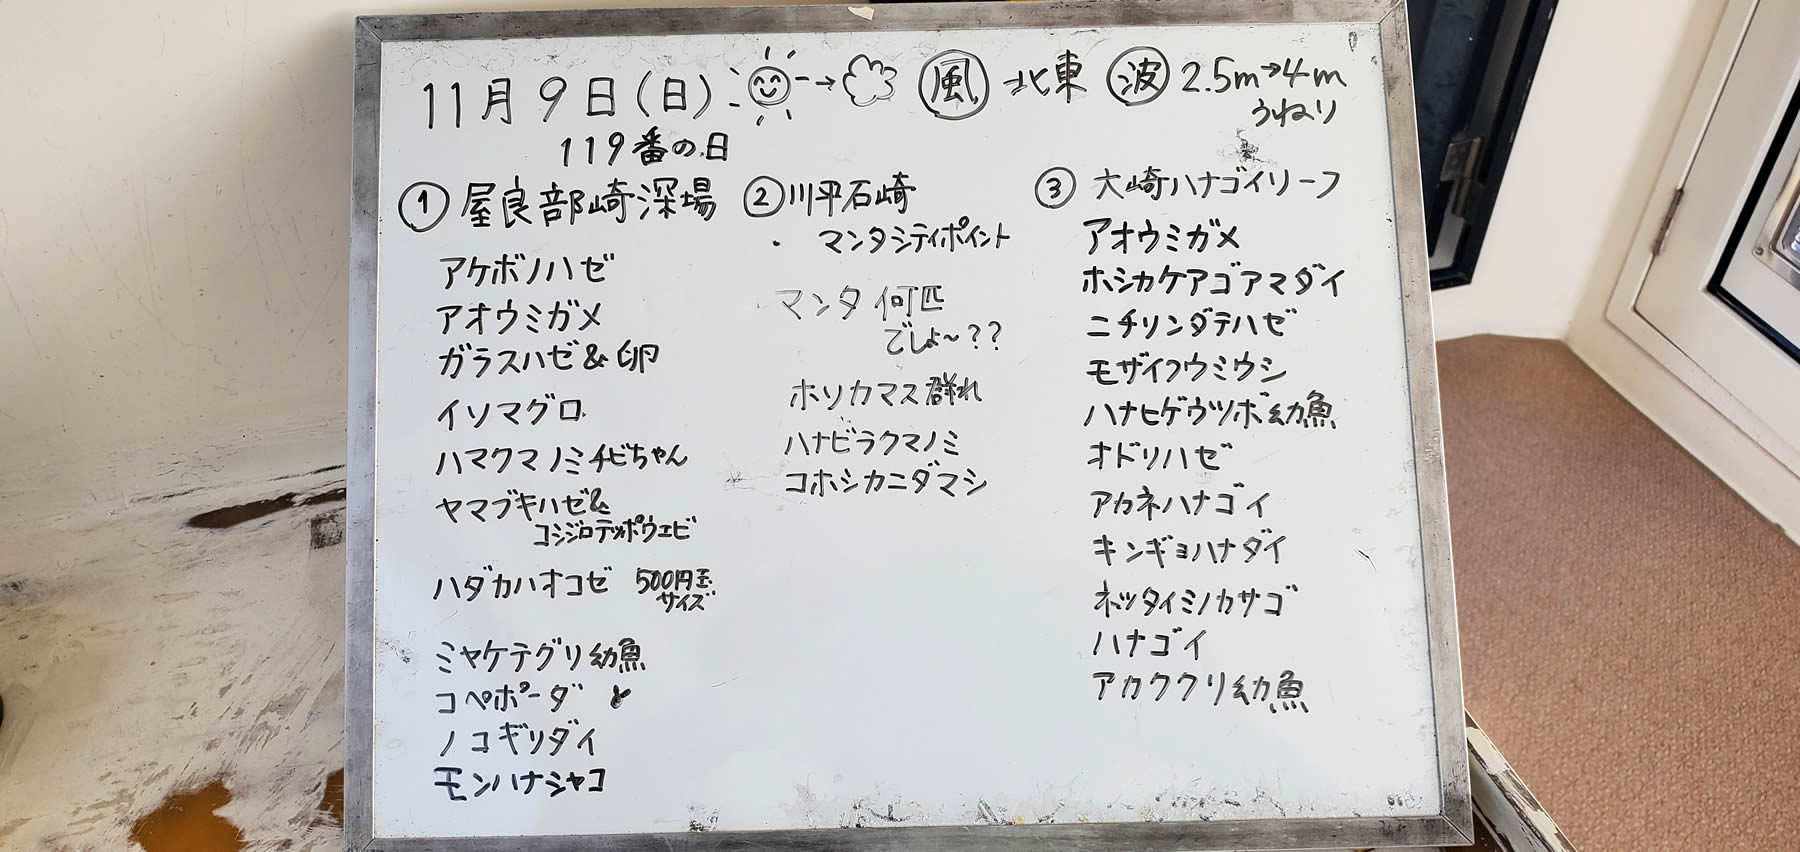 11月9日(日) → 風 北東 波 2.5m→4m
うねり
119番の日
① 屋良部崎深場
アケボノハゼ
アオウミガメ
ガラスハゼ&卵
イソマグロ
ハマクマノミチビちゃん
ヤマブキハゼ&
コシジロテッポウエビ
ハダカハオコゼ 500円玉
サイズ
ミヤケテグリ幼魚
コペポーダ と
ノコギリダイ
モンハナシャコ
② 川平石崎
・ マンタシティポイント
マンタ 何匹
でしょ〜??
ホソカマス群れ
ハナビラクマノミ
コホシカニダマシ
③ 大崎ハナゴイリーフ
アオウミガメ
ホシカケアゴアマダイ
ニチリンダテハゼ
モザイクウミウシ
ハナヒゲウツボ幼魚
オドリハゼ
アカネハナゴイ
キンギョハナダイ
ネッタイミノカサゴ
ハナゴイ
アカククリ幼魚